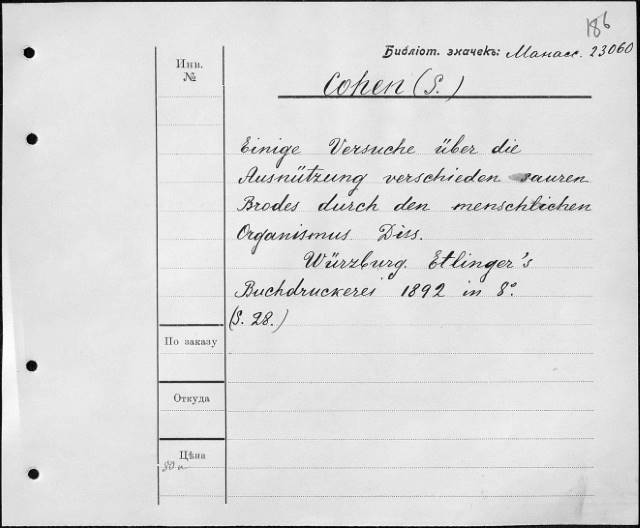 186
Библіот. значекъ: Манасс. 23060
Инв.
№
Cohen (S.)
Einige Versuche über die
Ausnützung verschieden sauren
Brodes durch den menschlichen
Organismus Diss.
Würzburg. Etlinger's
Buchdruckerei 1892 in 8°.
(S. 28.)
По заказу
Откуда
Цѣна